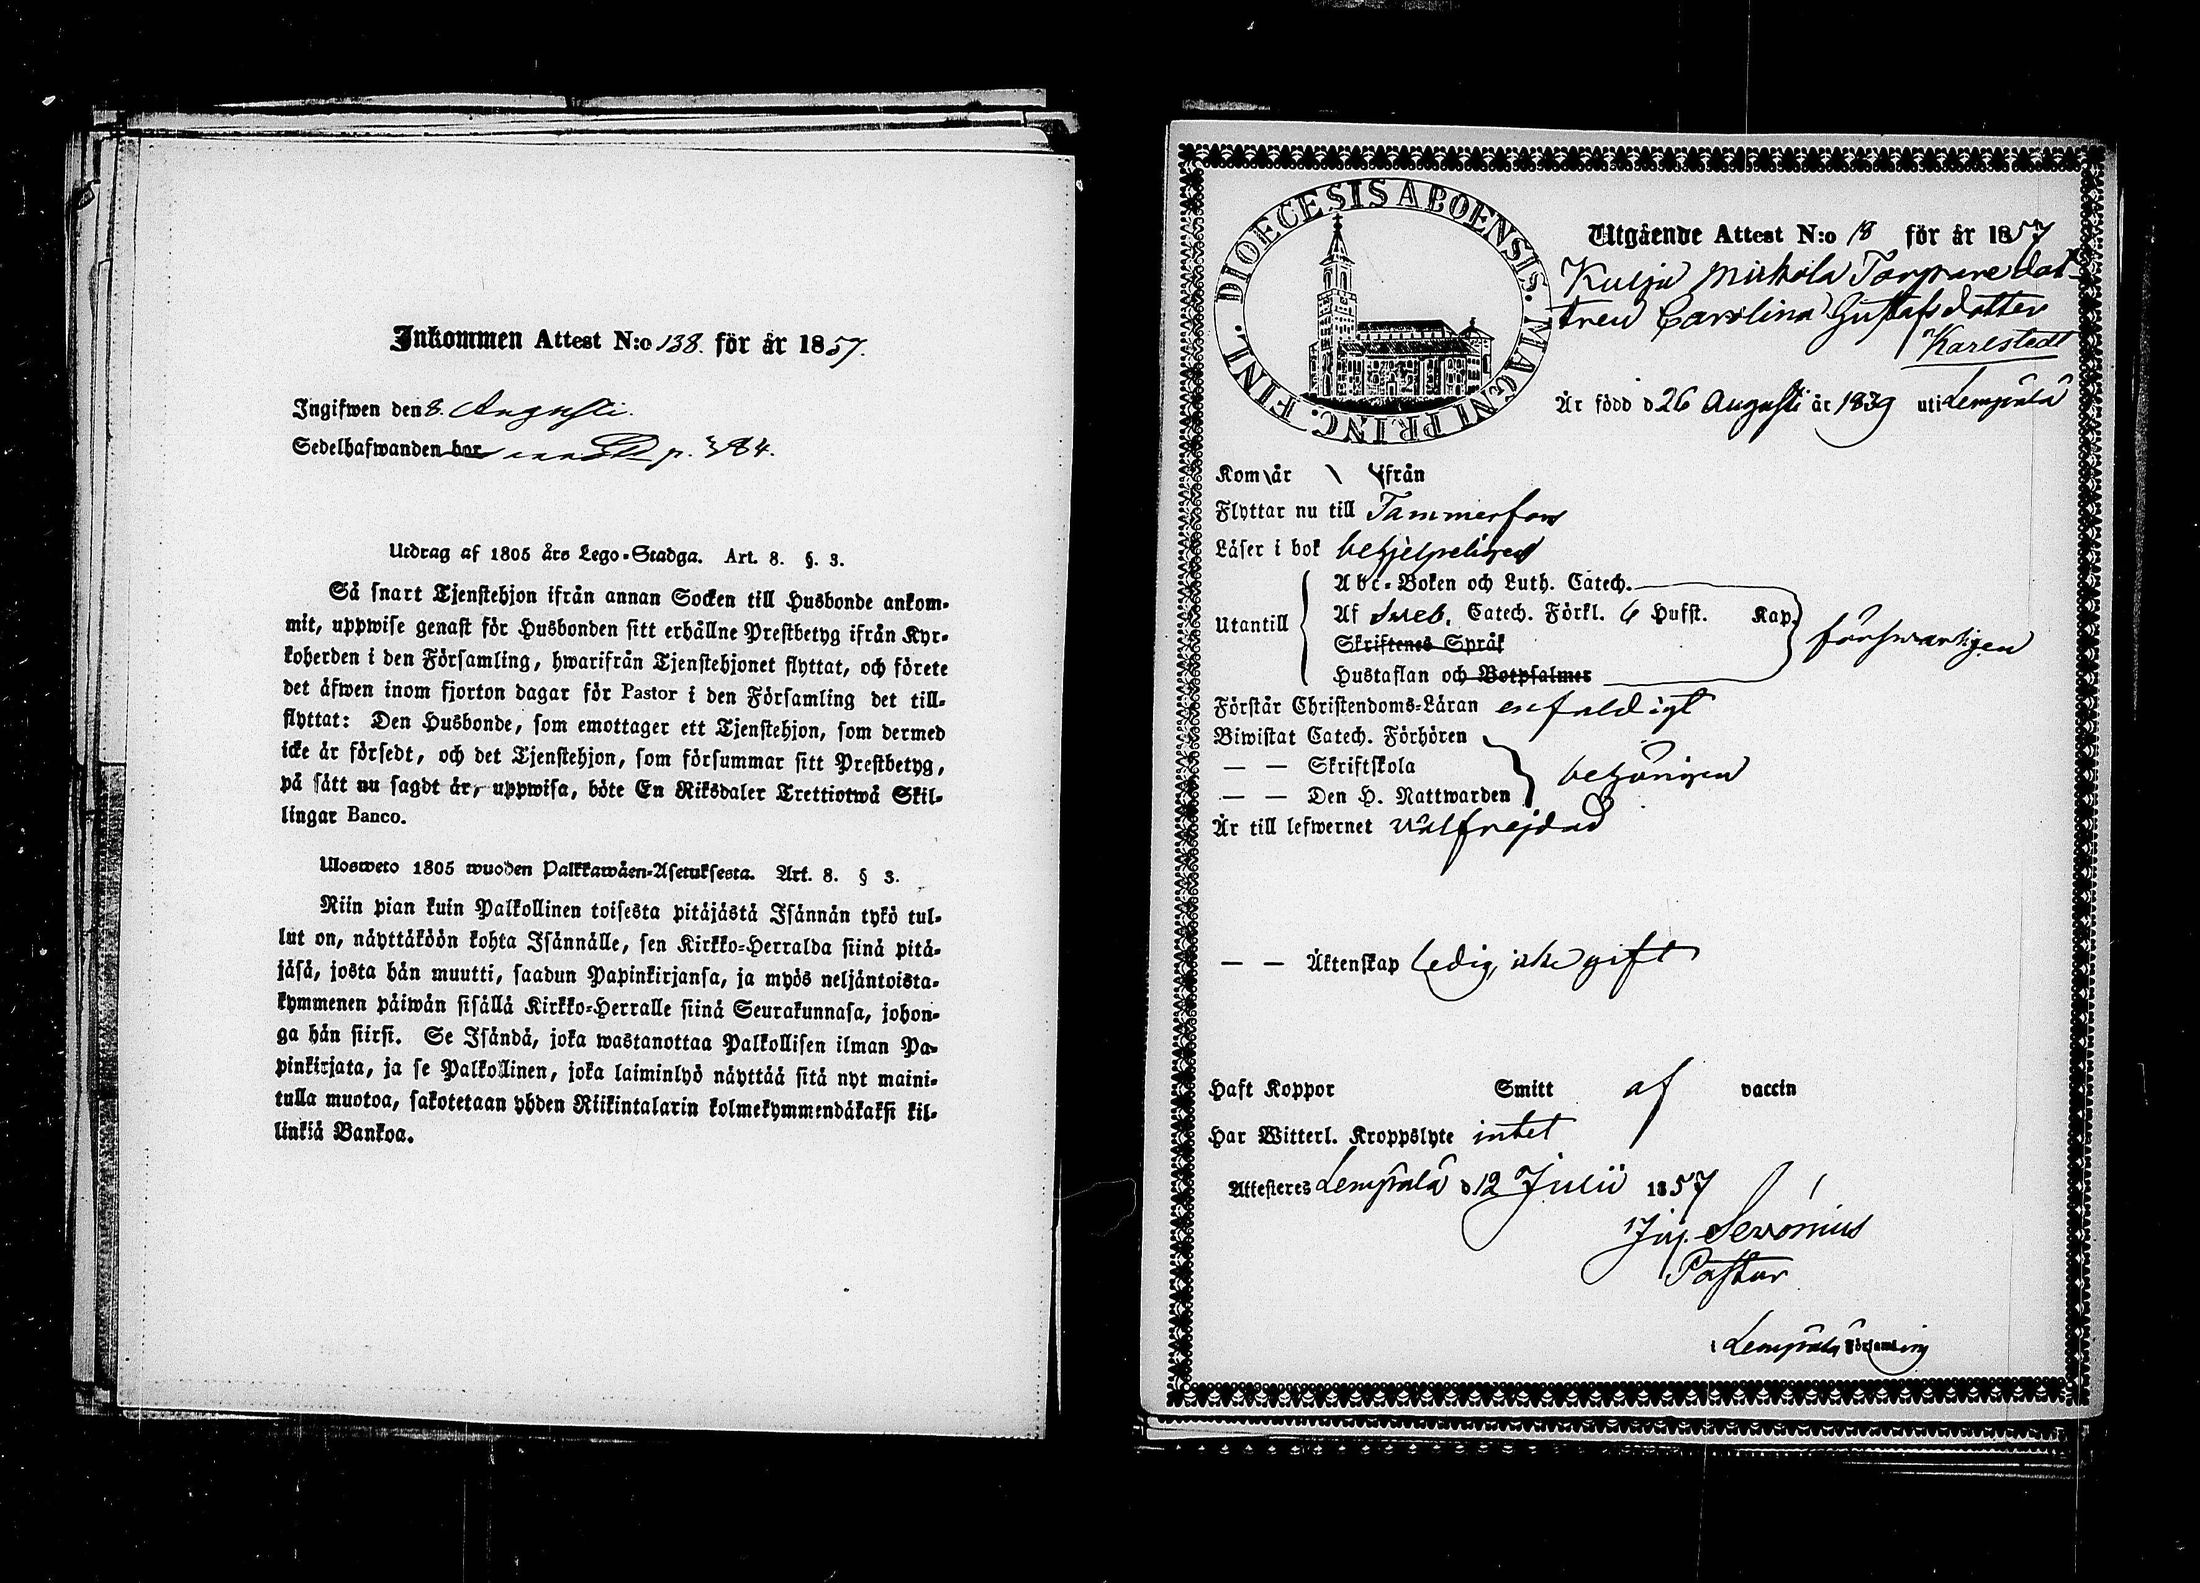 Inkommen Attest N:o 138. för år 1857.
Ingifwen den 8. Augusti.
Sedelhafwanden bor p. 384.
Utdrag af 1805 års Lego-Stadga. Art. 8. §. 3.
Så snart Tjenstehjon ifrån annan Socken till Husbonde ankom-
mit, uppwise genast för Husbonden sitt erhållne Prestbetyg ifrån Kyr-
koherden i den Församling, hwarifrån Tjenstehjonet flyttat, och förete
det äfwen inom fjorton dagar för Pastor i den Församling det till-
flyttat: Den Husbonde, som emottager ett Tjenstehjon, som dermed
icke är försedt, och det Tjenstehjon, som försummar sitt Prestbetyg,
på sätt nu sagdt är, uppwisa, böte En Riksdaler Trettiotwå Skil-
lingar Banco.
Ulosweto 1805 wuoden Palkkawäen-Asetuksesta. Art. 8. § 3.
Niin pian kuin Palkollinen toisesta pitäjästä Isännän tykö tul-
lut on, näyttäköön kohta Isännälle, sen Kirkko-Herralda siinä pitä-
jäsä, josta hän muutti, saadun Papinkirjansa, ja myös neljäntoista-
kymmenen päiwän sisällä Kirkko-Herralle siinä Seurakunnasa, johon-
ga hän siirsi. Se Isändä, joka wastanottaa Palkollisen ilman Pa-
pinkirjata, ja se Palkollinen, joka laiminlyö näyttää sitä nyt maini-
tulla muotoa, sakotetaan yhden Riikintalarin kolmekymmendäkaksi kil-
linkiä Bankoa.
DIOECESIS ABOENSIS. MAGNI PRINC. FINL.
Utgående Attest N:o 18 för år 1857
Kulju Mickola Torpare dot-
tren Carolina Gustafsdotter
Karlstedt
Är född d 26 Augusti år 1839 uti Lempälä
Kom år ifrån
Flyttar nu till Tammerfors
Läser i bok behjelpeligen
Utantill
Abc-Boken och Luth. Catech.
Af Sveb. Catech. Förkl. 6 Hufst. Kap.
Skriftenes Språk
Hustaflan och Botpsalmer
försvarligen
Förstår Christendoms-Läran enfaldigt
Biwistat Catech. Förhören
— — Skriftskola
— — Den H. Nattwarden
behörigen
Är till lefwernet välfrejdad
— — Äktenskap ledig, icke gift
Haft Koppor Smitt af vaccin
Har Witterl. Kroppslyte intet
Attesteras Lempälä d 12 Julii 1857
Servonius
Pastor
i Lempälä Församling